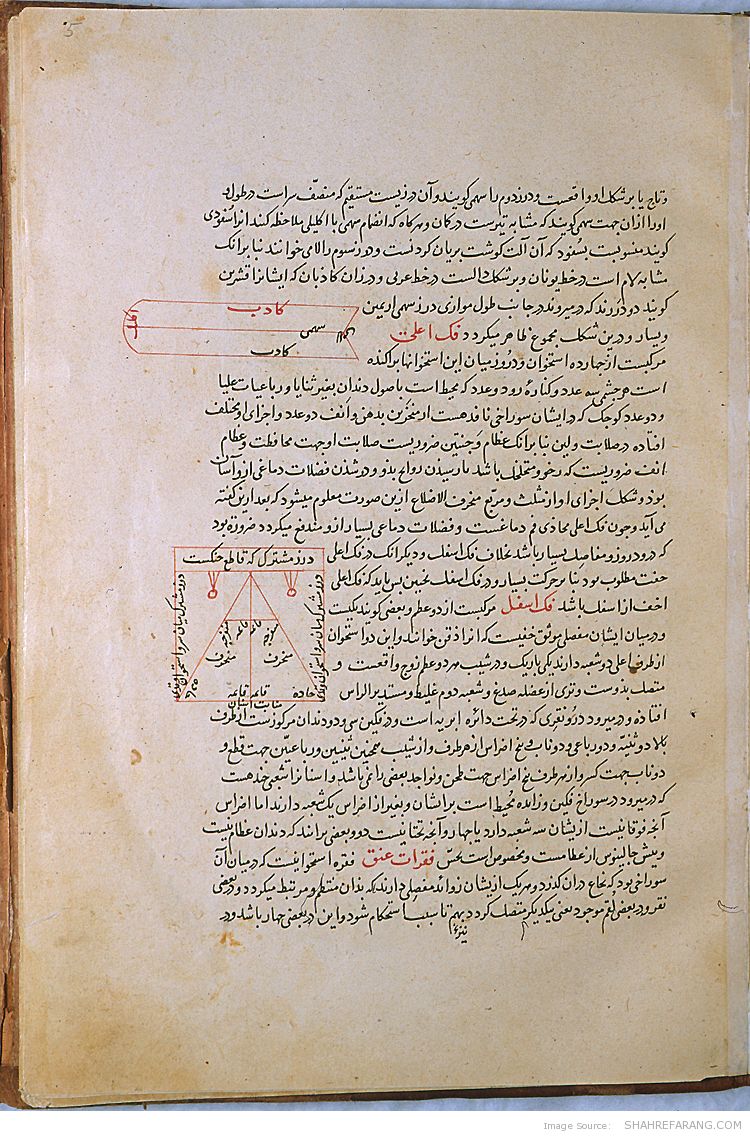 5
و تاج یا بر شکل او واقعست و درز دوم را سهمی کویند و آن درزیست مستقیم که منصّف سر است در طول و
او را ازان جهت سهمی کویند که مشابه تیرست در کمان و هرکاه که انضام سهمی با اکلیلی ملاحظه کنند انرا سفودی
کویند منسوبست بسفود که آن آلت کوشت بریان کردنست و درز سوم را لامی خوانند بنا بر انک
مشابه لام است در خط یونان و بر شکل دالست در خط عربی و درزان کاذبان که ایشانرا قشرین
کویند دو درزند که میروند در جانب طول موازی درز سهمی از یمین
و یسار و درین شکل مجموع ظاهر میکردد فک اعلی
مرکبست از چهارده استخوان و دروز میان این استخوانها براکنده
است هر چشمی سه عدد و کناره رود و عدد که محیط است باصول دندان بغیر ثنایا و رباعیات علیا
و دو عدد کوچک که در ایشان سوراخی نافد هست از منخرین بدهن و انف دو عدد و اجزای او مختلف
افتاده در صلابت و لین بنا بر انک عظام وجنتین ضروریست صلابت او جهت محافظت و عظام
انف ضروریست که رخو و متخلخل باشد تا رسیدن روایح بدو و در شدن فضلات دماغی ازو آسان
بود و شکل اجزای او از مثلث و مربع منحرف الاضلاع ازین صورت معلوم میشود که بعد ازین کفته
می آید و چون فک اعلی محاذی فم دماغست و فضلات دماغی بسیار از و مندفع میکردد ضروره بود
که درو دروز و مفاصل بسیار باشد بخلاف فک اسفل و دیکر انک در فک اعلی
خفت مطلوب بود بنا بر حرکت بسیار و در فک اسفل نحنین بس باید که فک اعلی
اخف از اسفل باشد فک اسفل مرکبست از دو عظم و بعضی کویند یکیست
و در میان ایشان مفصلی موثق خفیست که انرا ذقن خوانند و این دو استخوان
از طرف اعلی دو شعبه دارند یکی باریک و در شیب هر دو عظم زوج واقعست و
متصلک بدوست وتری از عضله صدغ و شعبه دوم غلیظ و مستدیر الراس
افتاده و میرود در نقری که در تحت دائره ابریه است و در فکین سی و دو دندان مرکوزست از طرف
بالا دو ثنیه و دو رباعی و دو ناب و پنج اضراس از هر طرف و از شیب همچنین ثنیتین و رباعیتین جهت قطع و
دو ناب جهت کسر و از هر طرف پنج اضراس جهت طحن و نواجد بعضی را نمی باشد و اسنانرا شعبی چند هست
که در میرود در سوراخ فکین و زایده محیط است بر ایشان و بغیر از اضراس یک شعبه دارند اما اضراس
آنچه فوقانیست از یشان سه شعبه دارد یا چهار و آنچه تحتانیست دو و بعضی برانند که دندان عظام نیست
و پیش جالینوس از عظامست و مخصوص است بحس فقرات عنق فقره استخوانیست که در میان آن
سوراخی بود که نخاع در ان کذرد و هر یک از یشان زوائد مفصلی دارند که بدان منتظم و مرتبط میکردد و در بعضی
نقر و در بعضی لقم موجود یعنی یکدیکر متصل کردد بهم تا سبب استحکام شود و این در بعضی چهار باشد و در
کادب
سهمی
کادب
درز مشترک که قاطع حنکست
منفرجه
قائمه
قائمه
منفرجه
منحرف
منحرف
حاده
قائمه
قائمه
حاده
Image Source: SHAHREFARANG.COM